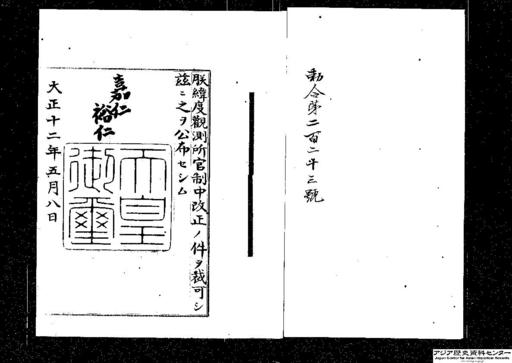 勅令第二百二十三號
朕緯度觀測所官制中改正ノ件ヲ裁可シ
茲ニ之ヲ公布セシム
嘉仁
裕仁
天皇
御璽
大正十二年五月八日
アジア歴史資料センター
Japan Center for Asian Historical Records